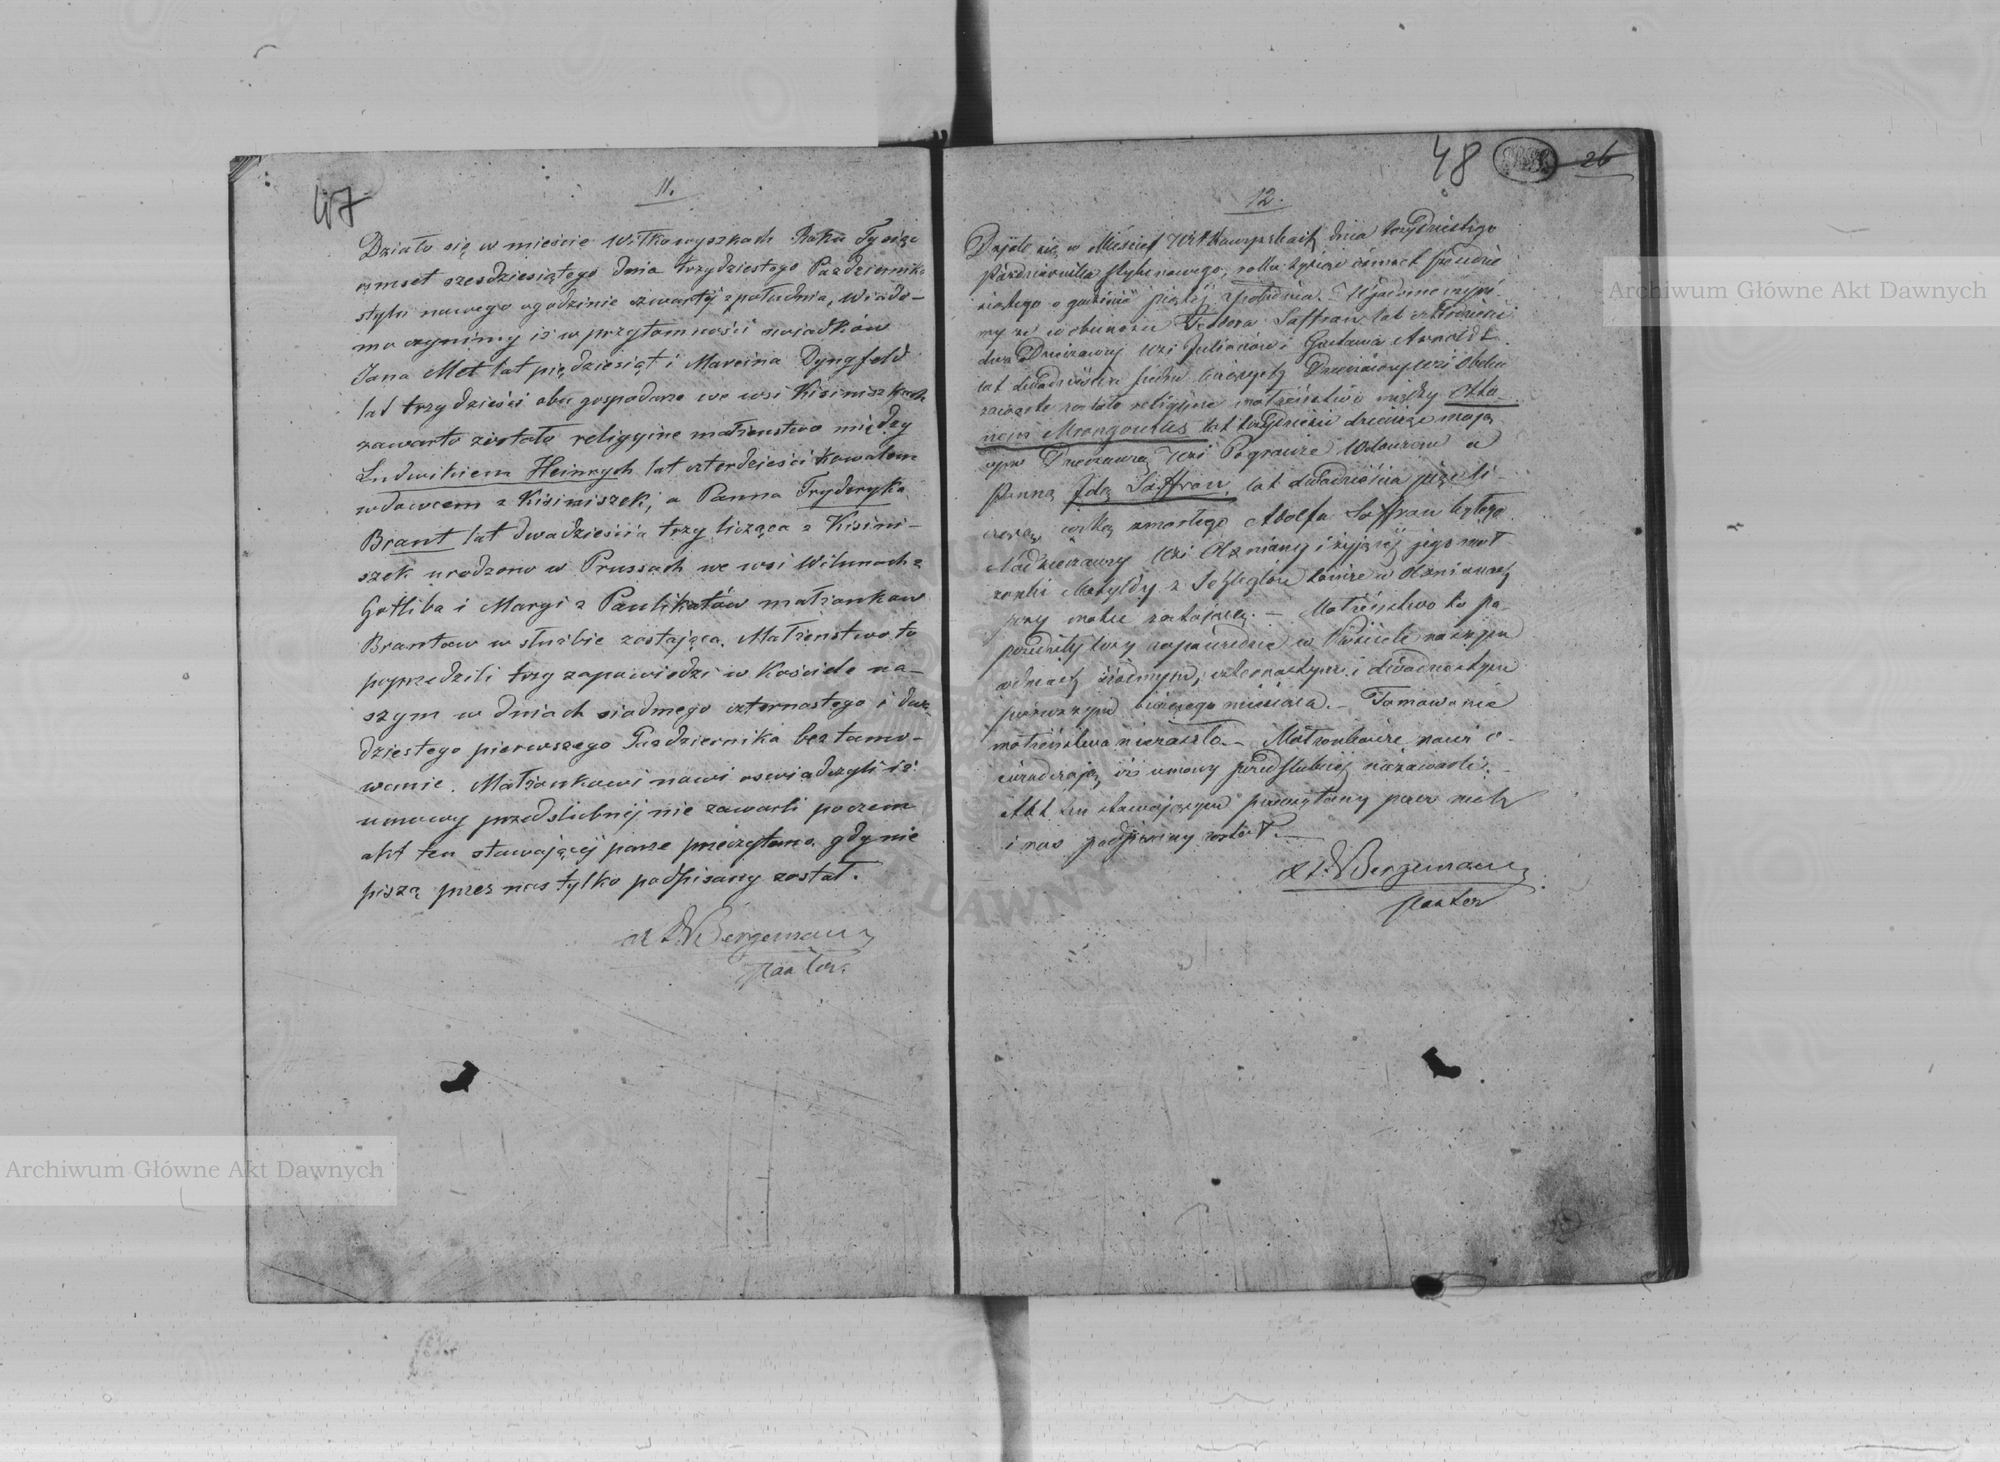 47
11.
Działo się w mieście Wiłkowyszkach Roku Tysiąc
ośmset szesdziesiątego dnia trzydziestego Pazdziernika
stylu nowego ogodzinie czwartij zpołudnia, Wiado-
mo czynimy iż w przytomności swiadków
Jana Met lat pięździesiąt i Marcina Dyngfeld
lat trzydzieści obu gospodarze we wsi Kisiniszkach
zawarto zostało religyine małżenstwo między
Ludwikiem Heinrych lat czterdzieści kowalem
wdowcem z Kisiniszek, a Panna Fryderyka
Brant lat dwadzieścia trzy licząca z Kisini-
szek urodzono w Prussach we wsi Wilunach z
Gotliba i Maryi z Paulikatów małżonkow
Brantow w służbie zostająca. Małżenstwo to
poprzedzili trzy zapowiedzi w Kościele na-
szym w dniach siodmego czternastego i dwu-
dziestego pierwszego Pazdziernika bez tamo-
wanie. Małżonkowi nowi oswiadczyli iż
umowy przedslubnij nie zawarli poczem
akt ten stawającej parze przeczytano gdy nie
piszą przez nas tylko podpisany został.
Bergemann
Pastor.
48
26
12.
Działo się w Mieście dnia trzydziestego
Pazdziernika stylu nowego, roku tysiąc ósmset
o godzinie piątéj z południa.
my że w obecności Saffran lat
dwa Dzierzawcy wsi Julianow i Gustawa Arnoldt
lat dwadzieścia siedm Dzierżawcy wsi
zawarte zostało religijne małżeństwo między Otto-
nem Mrongowius lat trzydzieści dziewięć mają-
cym Dzierzawcą wsi Pograuże Wdowcem a
Panną Idą Saffran, lat dwadzieścia pięć li-
czącą córką zmarłego Adolfa Saffran byłego
Naddzierzawcy wsi i żyjącej jego mał-
zonki Matyldy z
przy matce zostającą. — Małżeństwo to po-
przedziły trzy zapowiedzie w Kościele naszym
w dniach siódmym, czternastym i dwudziestym
pierwszym bieżącego miesiąca. — Tamowanie
małżeństwa niezaszło. — Małżonkowie nowi o-
świadczają iż umowy przedślubnej niezawarli. —
Akt ten stawającym przeczytany przez nich
i nas podpisany został. —
Bergemann
Pastor
Archiwum Główne Akt Dawnych
Archiwum Główne Akt Dawnych
DAWNY